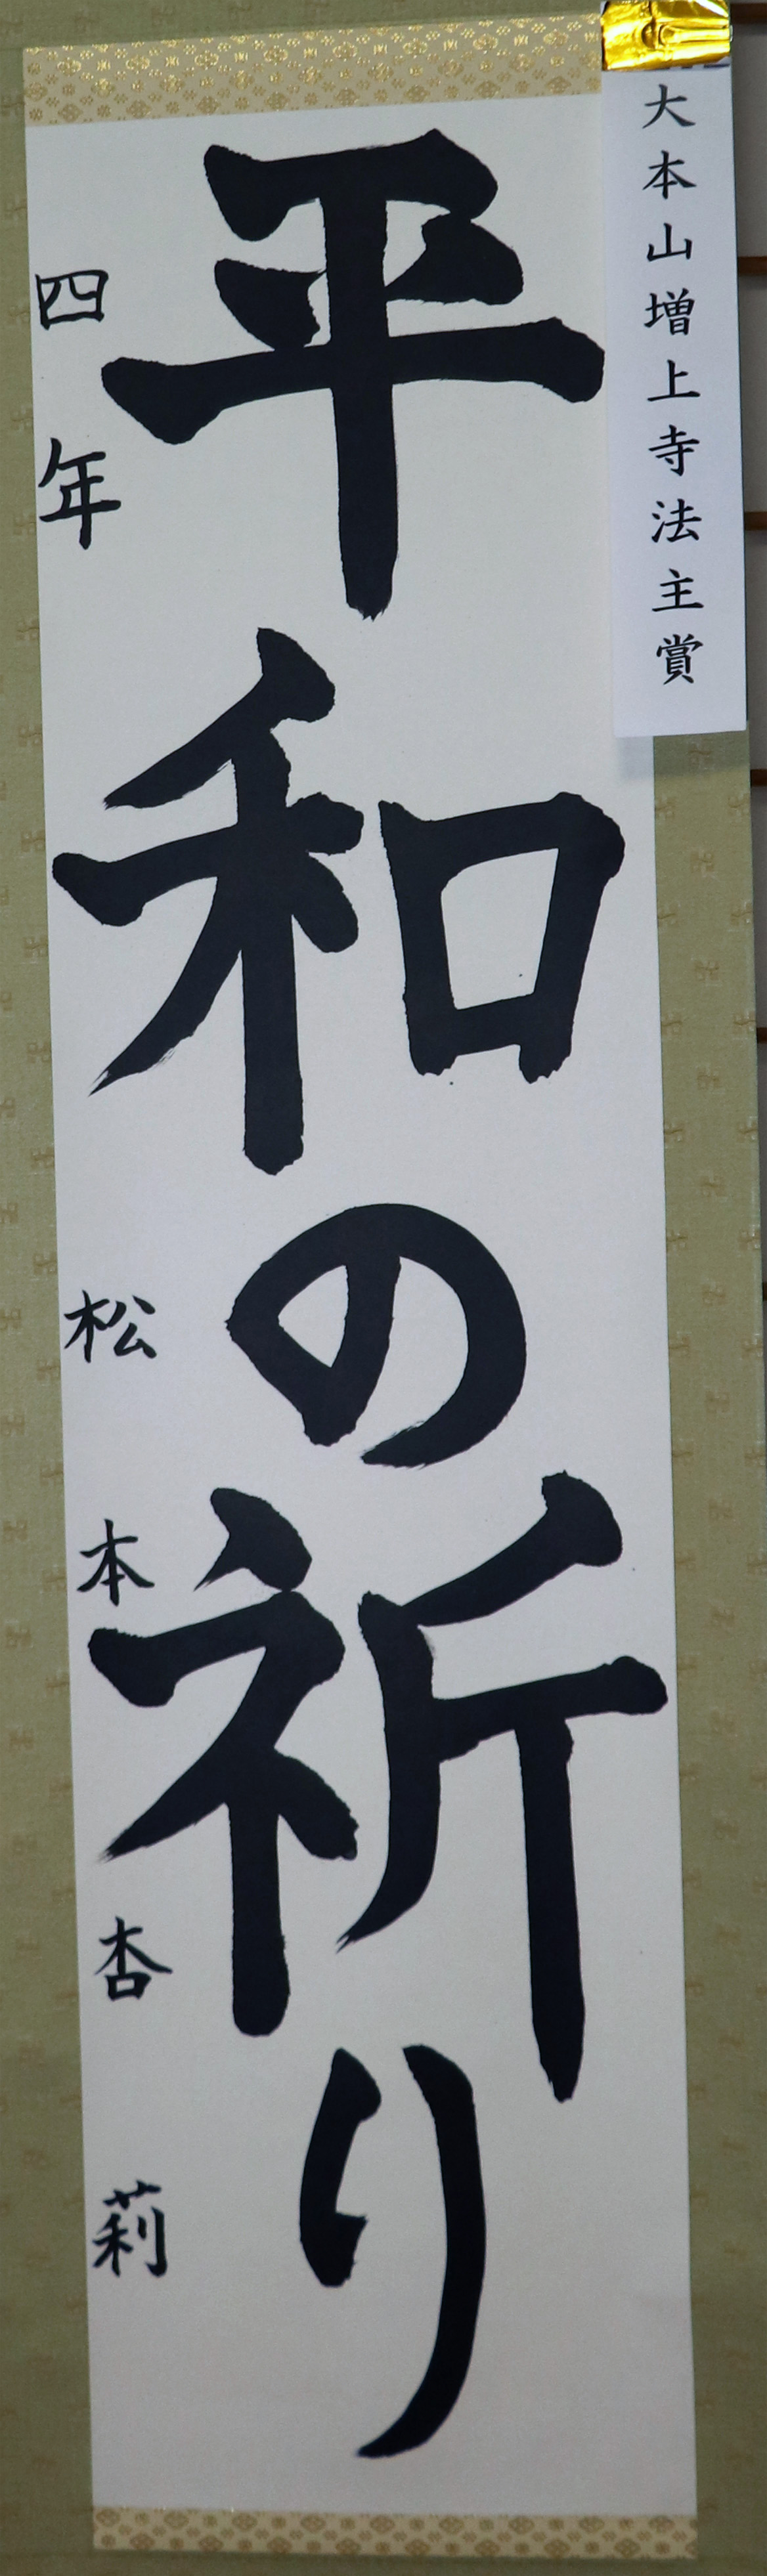 大本山増上寺法主賞
平和の祈り
四年 松本杏莉